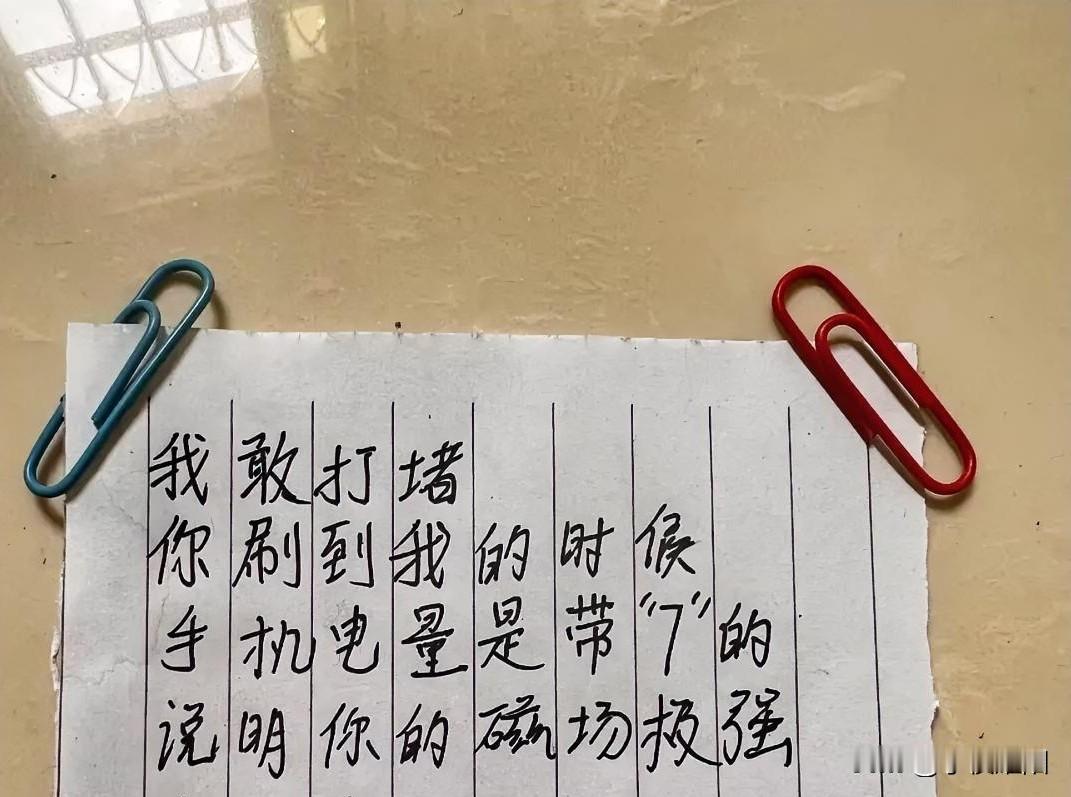 我敢打堵
你刷到我的时候
手机电量是带“7”的
说明你的磁场极强